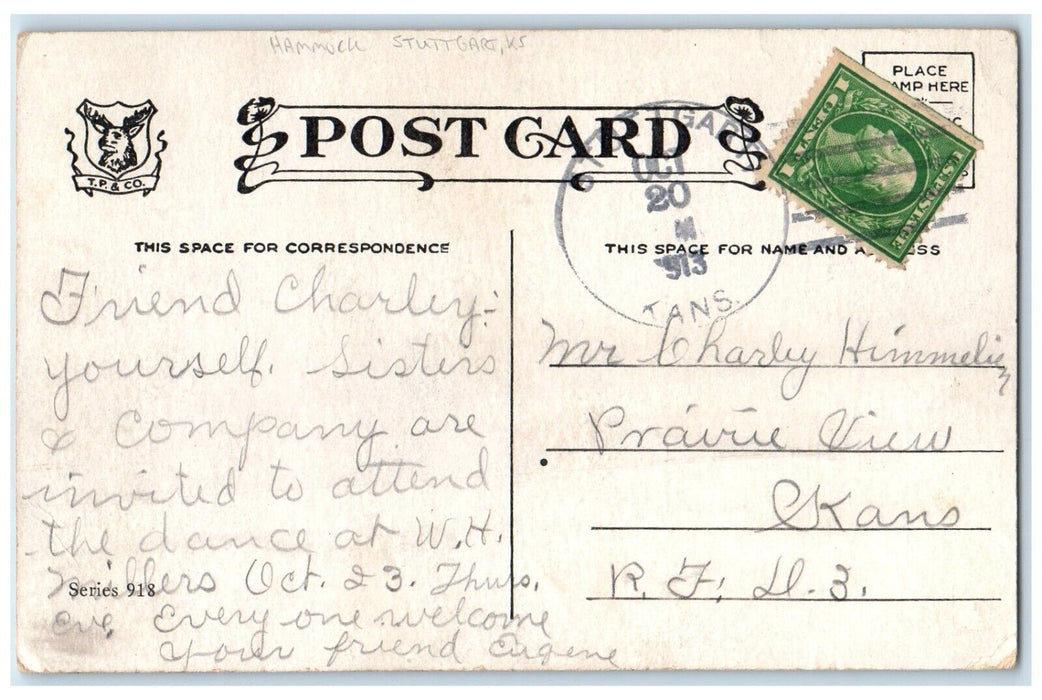 HAMMOCK STUTTGART, KS
PLACE
STAMP HERE
T. P. & CO.
POST CARD
GAR
OCT
20
M
1913
KANS.
THIS SPACE FOR CORRESPONDENCE
THIS SPACE FOR NAME AND ADDRESS
Friend Charley:
yourself. Sisters
& Company are
invited to attend
the dance at W.H.
Millers Oct. 23. Thurs.
eve. Every one welcome
your friend Eugene
Series 918
Mr Charley Himmelien
Prairie View
Kans
R. F. D. 3.